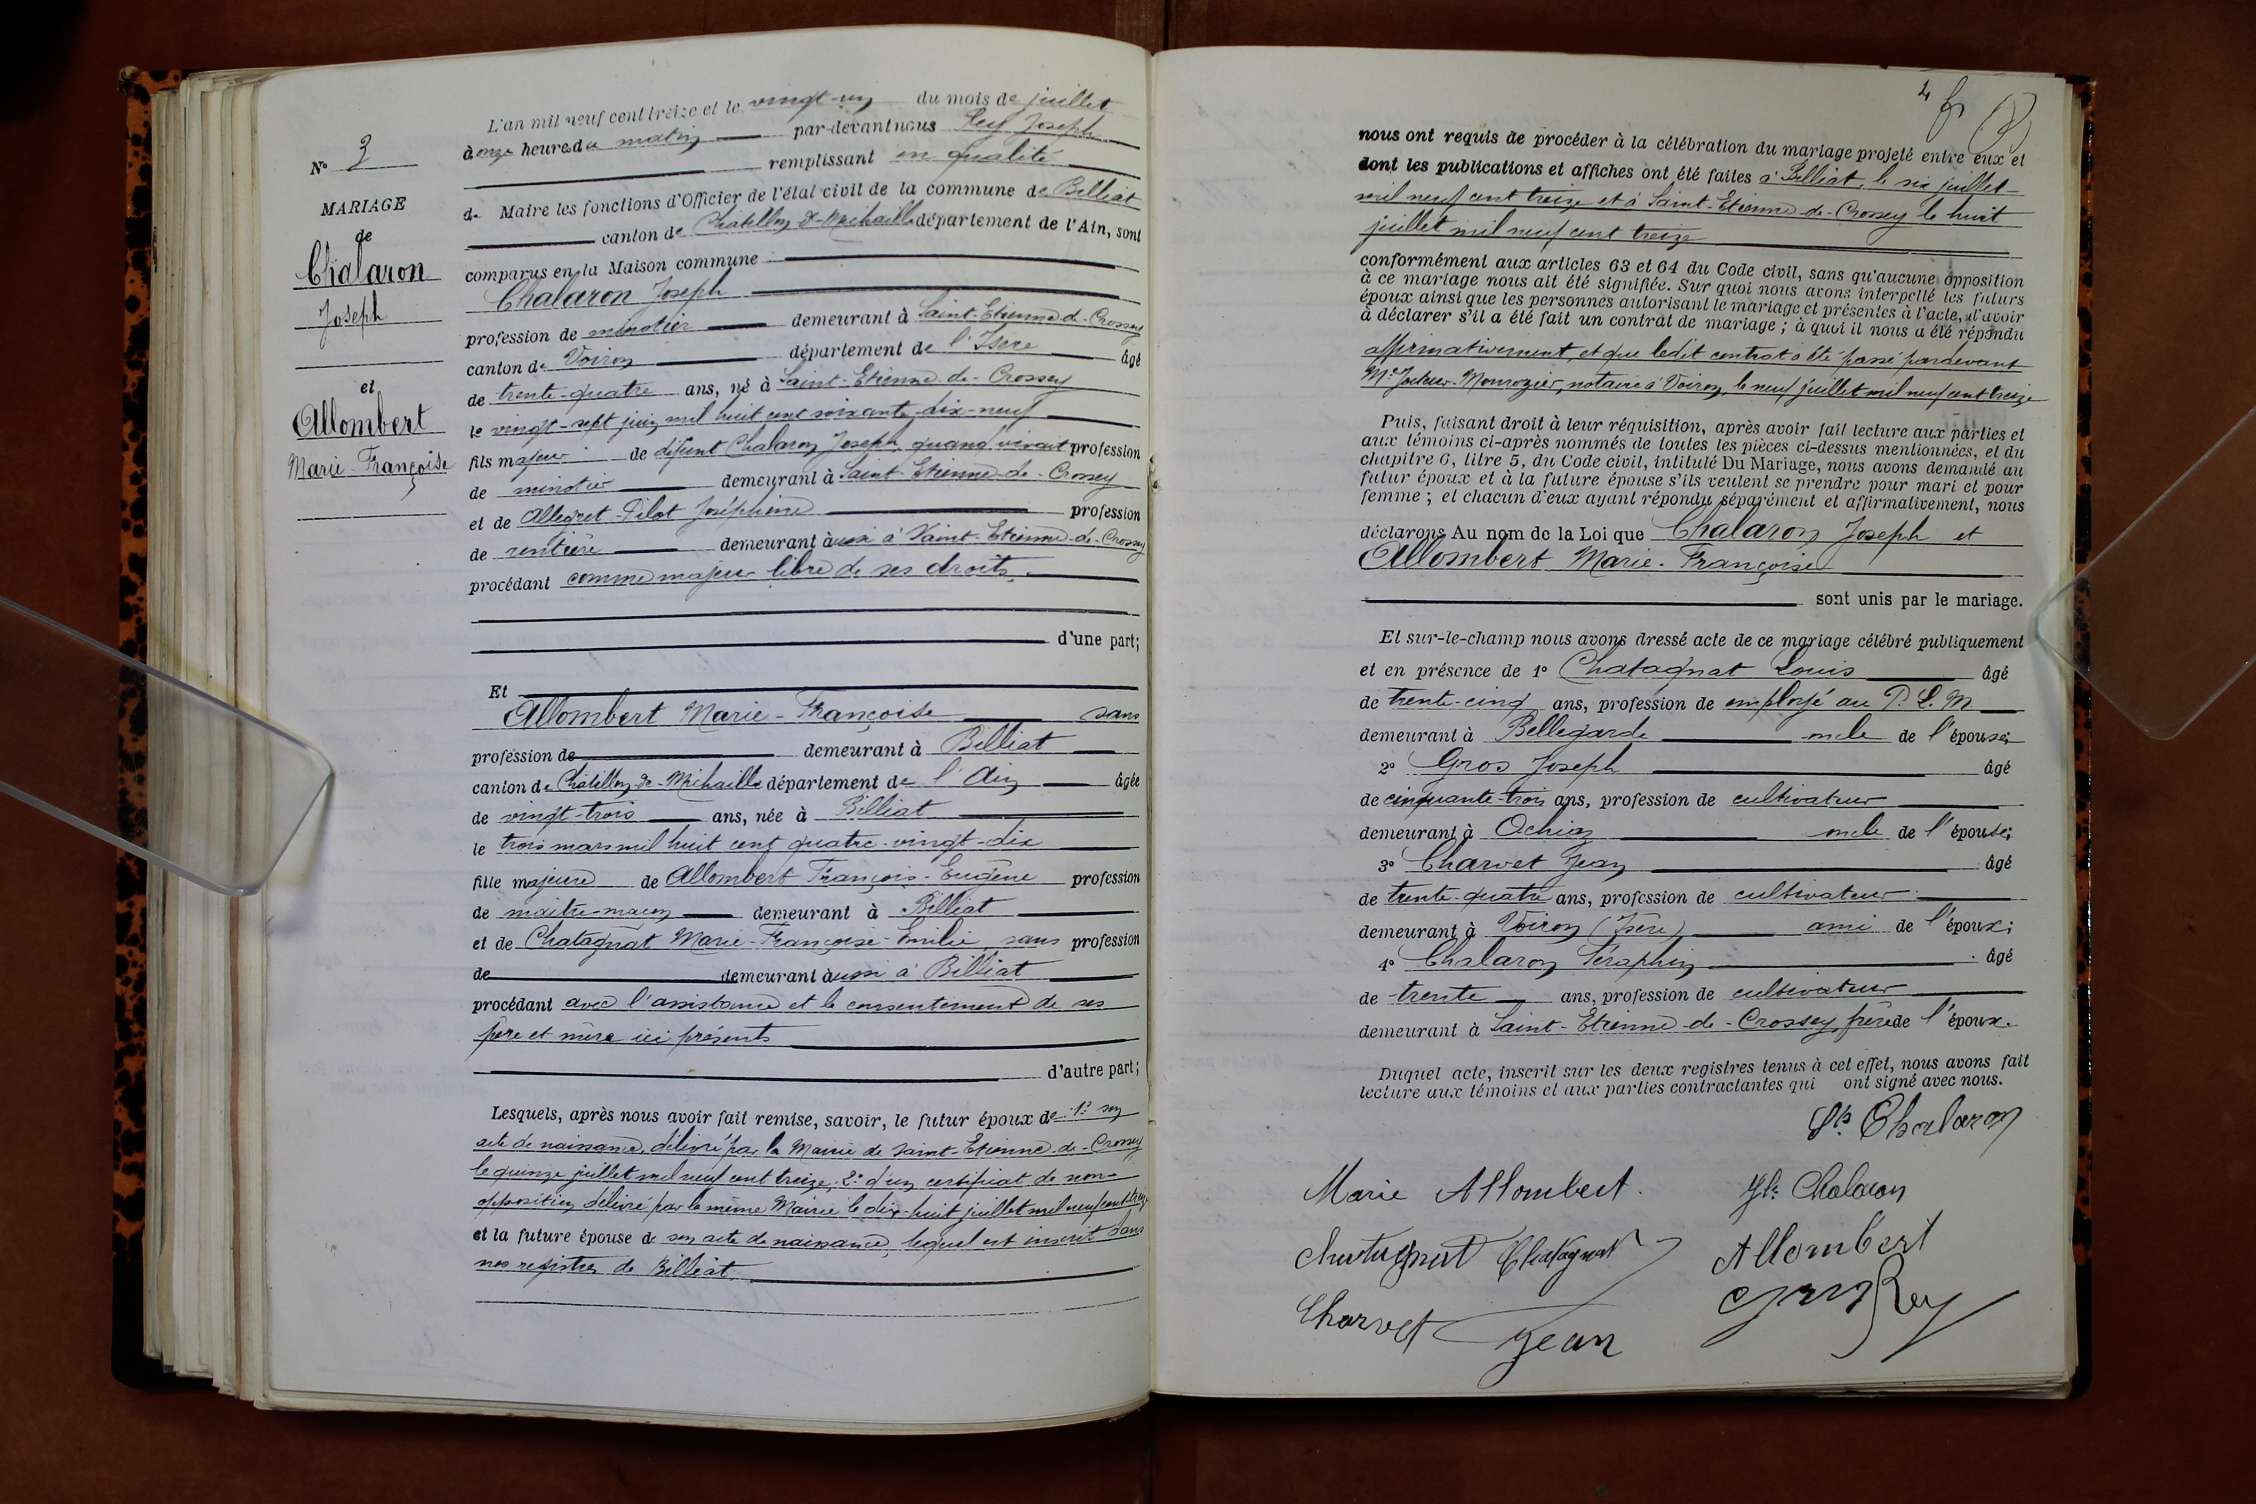 L'an mil neuf cent treize et le vingt-un du mois de juillet
à onze heures du matin par-devant nous Rey Joseph
remplissant en qualité
de Maire les fonctions d'Officier de l'état civil de la commune de Billiat
canton de Châtillon-de-Michaille département de l'Ain, sont
comparus en la Maison commune
Chalaron Joseph
profession de minotier demeurant à Saint-Etienne-de-Crossey
canton de Voiron département de l'Isère âgé
de trente-quatre ans, né à Saint-Etienne-de-Crossey
le vingt-sept juin mil huit cent soixante-dix-neuf
fils majeur de défunt Chalaron Joseph, quand vivait profession
de minotier demeurant à Saint-Etienne-de-Crossey
et de Allegret-Pilot Joséphine profession
de rentière demeurant aussi à Saint-Etienne-de-Crossey
procédant comme majeur libre de ses droits.
d'une part;
Et
Allombert Marie-Françoise sans
profession de demeurant à Billiat
canton de Châtillon-de-Michaille département de l'Ain âgée
de vingt-trois ans, née à Billiat
le trois mars mil huit cent quatre-vingt-dix
fille majeure de Allombert François-Eugène profession
de maître-maçon demeurant à Billiat
et de Chatagnat Marie-Françoise-Emilie, sans profession
de demeurant aussi à Billiat
procédant avec l'assistance et le consentement de ses
père et mère ici présents
d'autre part;
Lesquels, après nous avoir fait remise, savoir, le futur époux de 1° son
acte de naissance, délivré par la Mairie de Saint-Etienne-de-Crossey
le quinze juillet mil neuf cent treize; 2° d'un certificat de non-
opposition délivré par la même Mairie le dix-huit juillet mil neuf cent treize
et la future épouse de son acte de naissance, lequel est inscrit dans
nos registres de Billiat.
N° 3
MARIAGE
de
Chalaron
Joseph
et
Allombert
Marie-Françoise
4
nous ont requis de procéder à la célébration du mariage projeté entre eux et
dont les publications et affiches ont été faites à Billiat, le six juillet
mil neuf cent treize et à Saint-Etienne-de-Crossey le huit
juillet mil neuf cent treize
conformément aux articles 63 et 64 du Code civil, sans qu'aucune opposition
à ce mariage nous ait été signifiée. Sur quoi nous avons interpellé les futurs
époux ainsi que les personnes autorisant le mariage et présentes à l'acte, d'avoir
à déclarer s'il a été fait un contrat de mariage; à quoi il nous a été répondu
affirmativement, et que ledit contrat a été passé pardevant
Me notaire à Voiron, le neuf juillet mil neuf cent treize
Puis, faisant droit à leur réquisition, après avoir fait lecture aux parties et
aux témoins ci-après nommés de toutes les pièces ci-dessus mentionnées, et du
chapitre 6, titre 5, du Code civil, intitulé Du Mariage, nous avons demandé au
futur époux et à la future épouse s'ils veulent se prendre pour mari et pour
femme; et chacun d'eux ayant répondu séparément et affirmativement, nous
déclarons Au nom de la Loi que Chalaron Joseph et
Allombert Marie-Françoise
sont unis par le mariage.
Et sur-le-champ nous avons dressé acte de ce mariage célébré publiquement
et en présence de 1° Chatagnat Louis âgé
de trente-cinq ans, profession de employé au P. L. M
demeurant à Bellegarde oncle de l'épouse;
2° Gros Joseph âgé
de cinquante-trois ans, profession de cultivateur
demeurant à Ochiaz oncle de l'épouse;
3° Charvet Jean âgé
de trente-quatre ans, profession de cultivateur
demeurant à Voiron (Isère) ami de l'époux;
4° Chalaron Séraphin âgé
de trente ans, profession de cultivateur
demeurant à Saint-Etienne-de-Crossey, frère de l'époux.
Duquel acte, inscrit sur les deux registres tenus à cet effet, nous avons fait
lecture aux témoins et aux parties contractantes qui ont signé avec nous.
Chalaron
Marie Allombert. Chalaron
Chatagnat Chatagnat Allombert
Charvet Jean Gros Rey